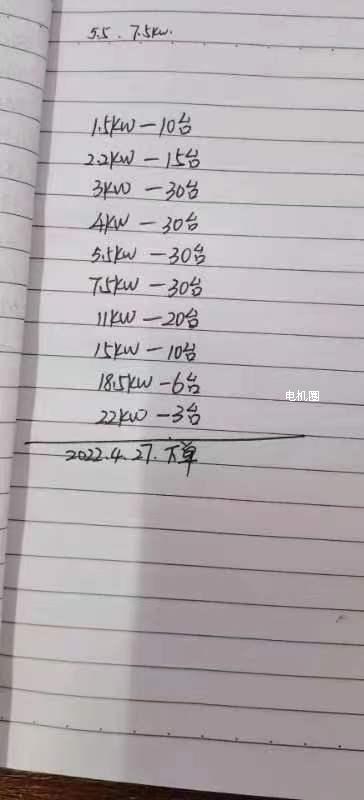 5.5. 7.5kw.
1.5KW—10台
2.2KW—15台
3KW—30台
4KW—30台
5.5KW—30台
7.5KW—30台
11KW—20台
15KW—10台
18.5KW-6台
电机圈
22KW—3台
2022.4.27.下单